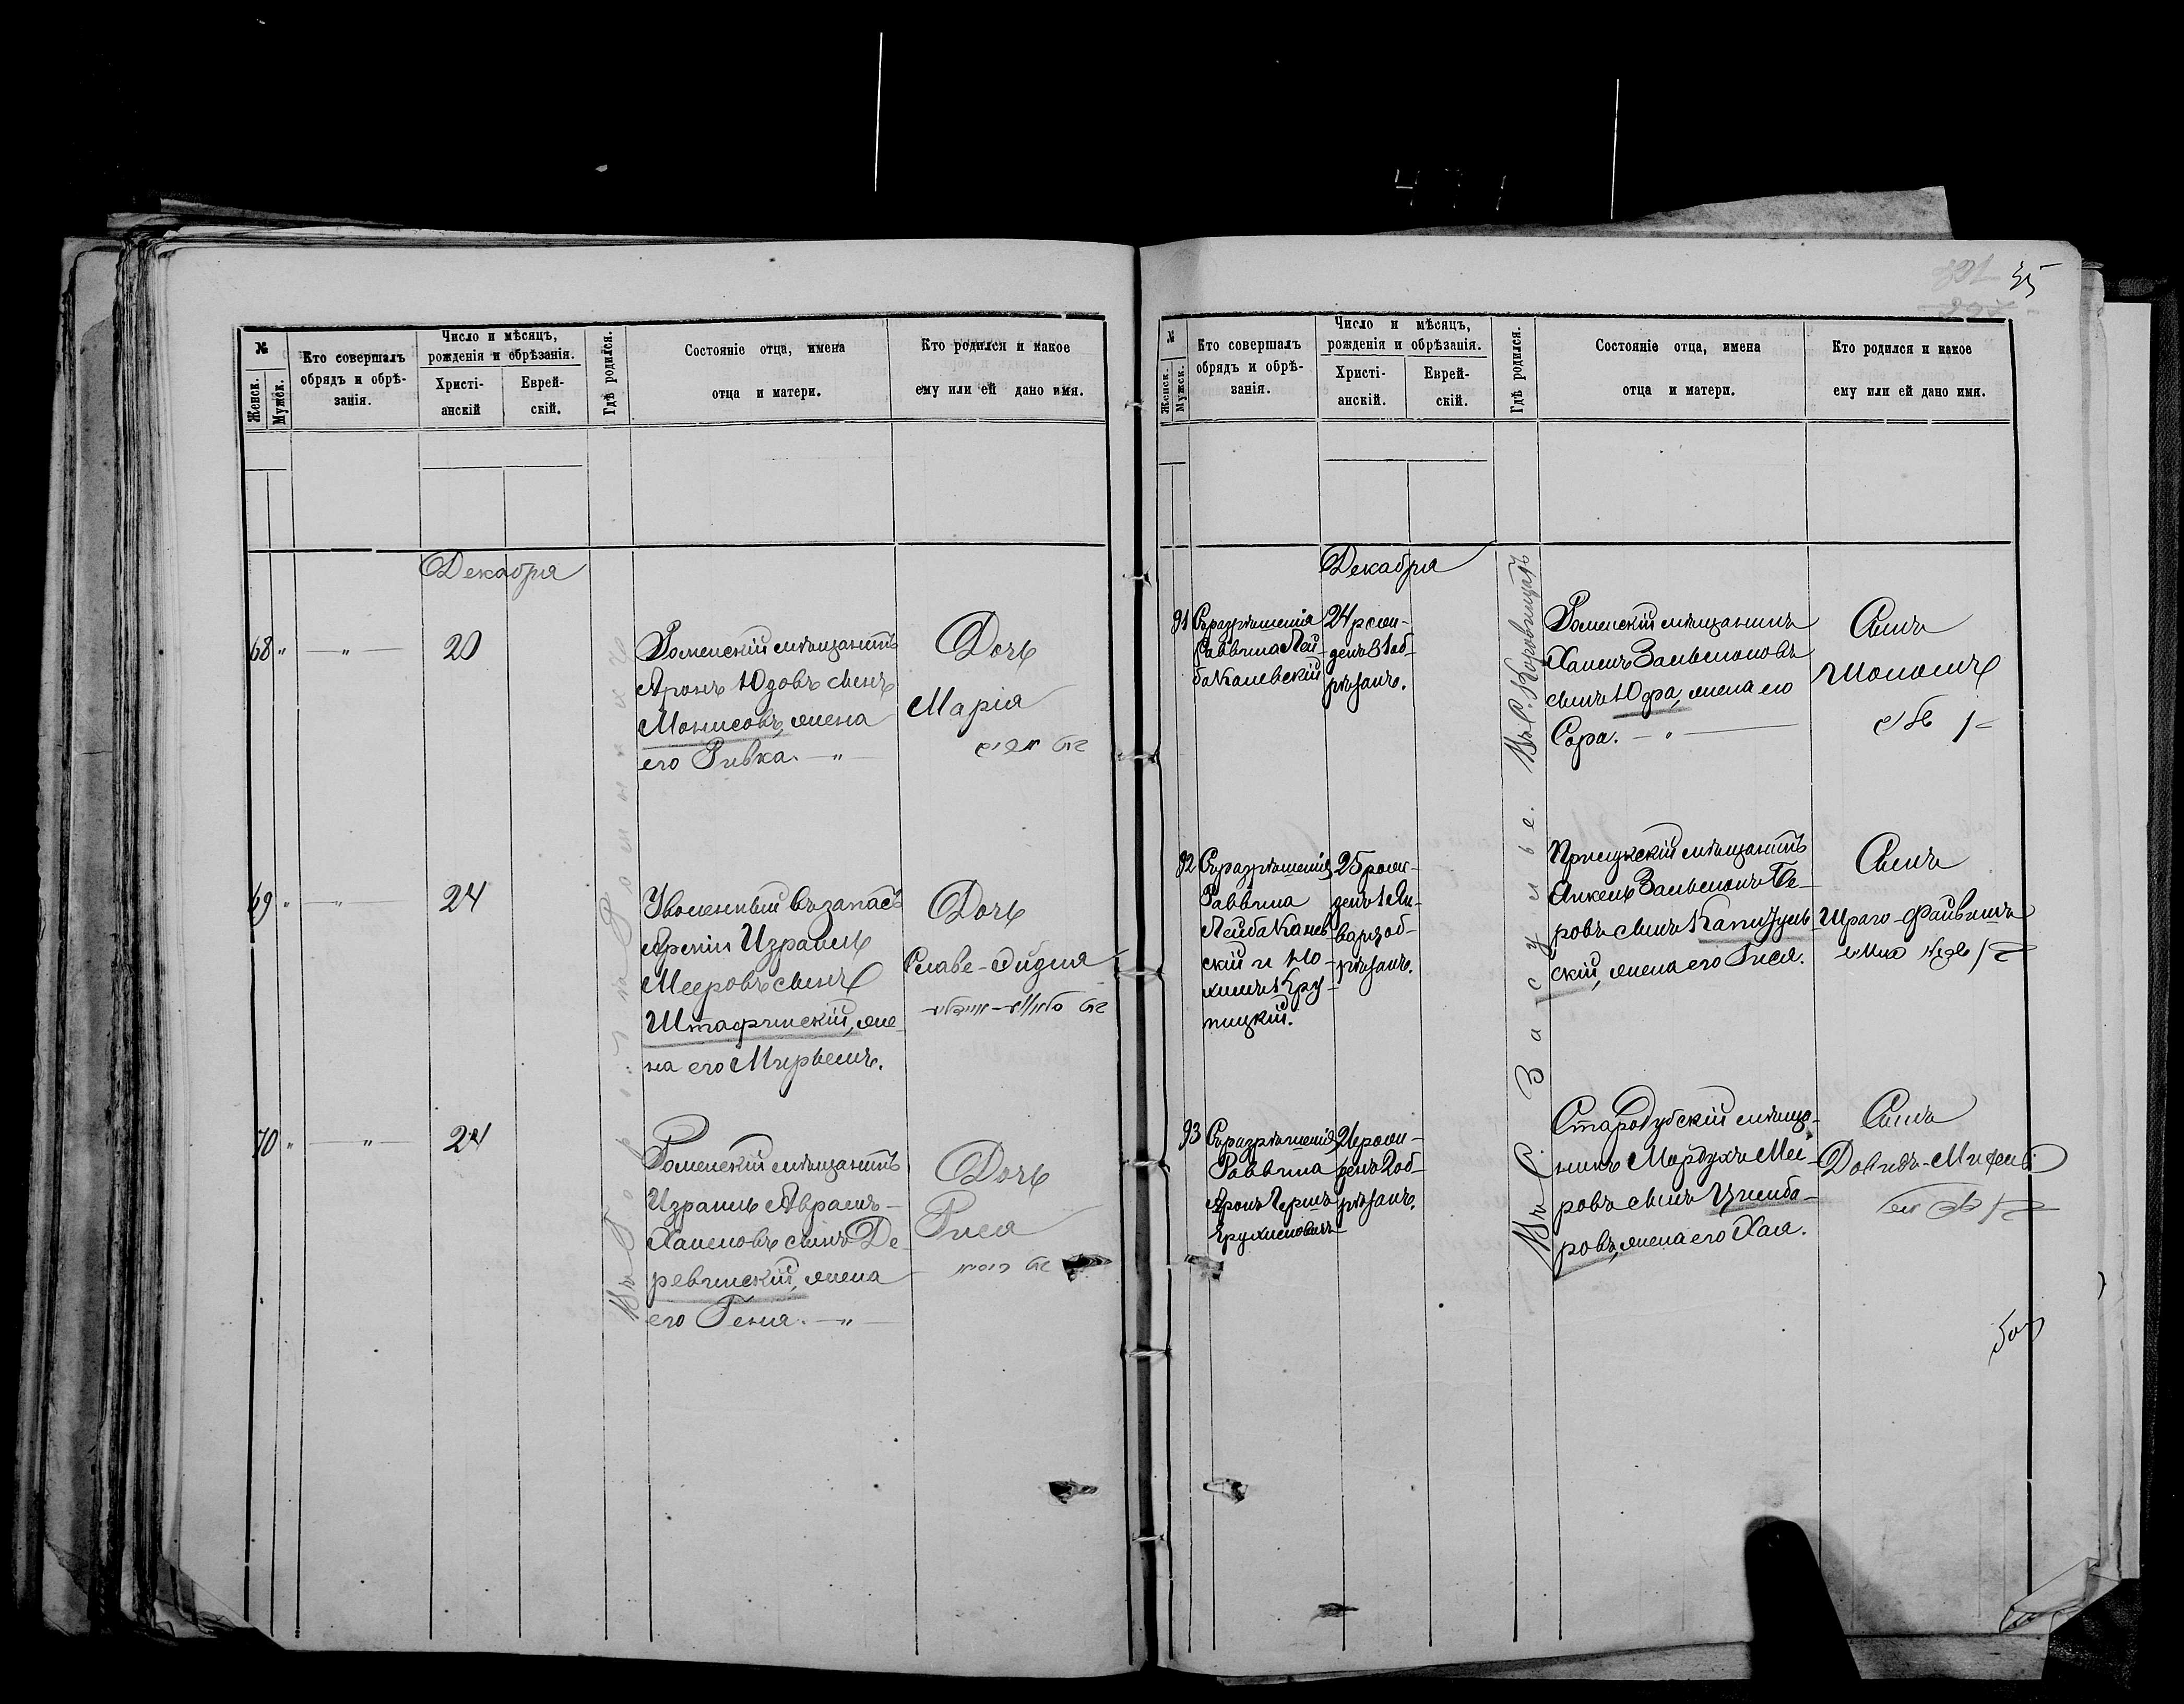 35
№
Женск.
Мужск.
Кто совершалъ
обрядъ и обрѣ-
занія.
Число и мѣсяцъ,
рожденія и обрѣзанія.
Христі-
анскій
Еврей-
скій.
Гдѣ родился.
Состояніе отца, имена
отца и матери.
Кто родился и какое
ему или ей дано имя.
Декабря
68 " — " — 20
Роменскій мѣщанинъ
Аронъ Юдовъ сынъ
Монисовъ, жена
его Ривка. — " —
Дочь
Марія
69 " — " — 24
Уволенный въ запасъ
Арміи Израиль
Мееровъ сынъ
Штафинскій, же-
на его Мирьемъ.
Дочь
Славе-Фидля
70 " — " — 24
Роменскій мѣщанинъ
Израиль Абрамъ-
Хаимовъ сынъ Де-
ревинскій, жена
его Геня. — " —
Дочь
Рися
Въ Го
№
Женск.
Мужск.
Кто совершалъ
обрядъ и обрѣ-
занія.
Число и мѣсяцъ,
рожденія и обрѣзанія.
Христі-
анскій.
Еврей-
скій.
Гдѣ родился.
Состояніе отца, имена
отца и матери.
Кто родился и какое
ему или ей дано имя.
Декабря
91
Съ разрѣшенія
Раввина Лей-
ба Каневскій
24 рож-
денъ 31 об-
рѣзанъ.
Въ С. Коровинцахъ
Роменскій мѣщанинъ
Хаимъ Зальмоновъ
сынъ Юфа, жена его
Сора. — " —
Сынъ
Шоломъ
92
Съ разрѣшенія
Раввина
Лейба Канев-
скій и Но-
химъ Кру-
пицкій.
25 рож-
денъ 1 Ян-
варя об-
рѣзанъ.
Въ С. Засулье.
Прилукскій мѣщанинъ
Янкель Зальмонъ Бе-
ровъ сынъ Капжуль-
скій, жена его Рися.
Сынъ
Шраго-Файвишъ
93
Съ разрѣшенія
Раввина
Аронъ Гершъ
Ерухимовичъ
26 рож-
денъ 2 об-
рѣзанъ.
Стародубскій мѣща-
нинъ Мордухъ Меі-
ровъ сынъ Цимба-
ровъ, жена его Хая.
Сынъ
Довидъ-Михель